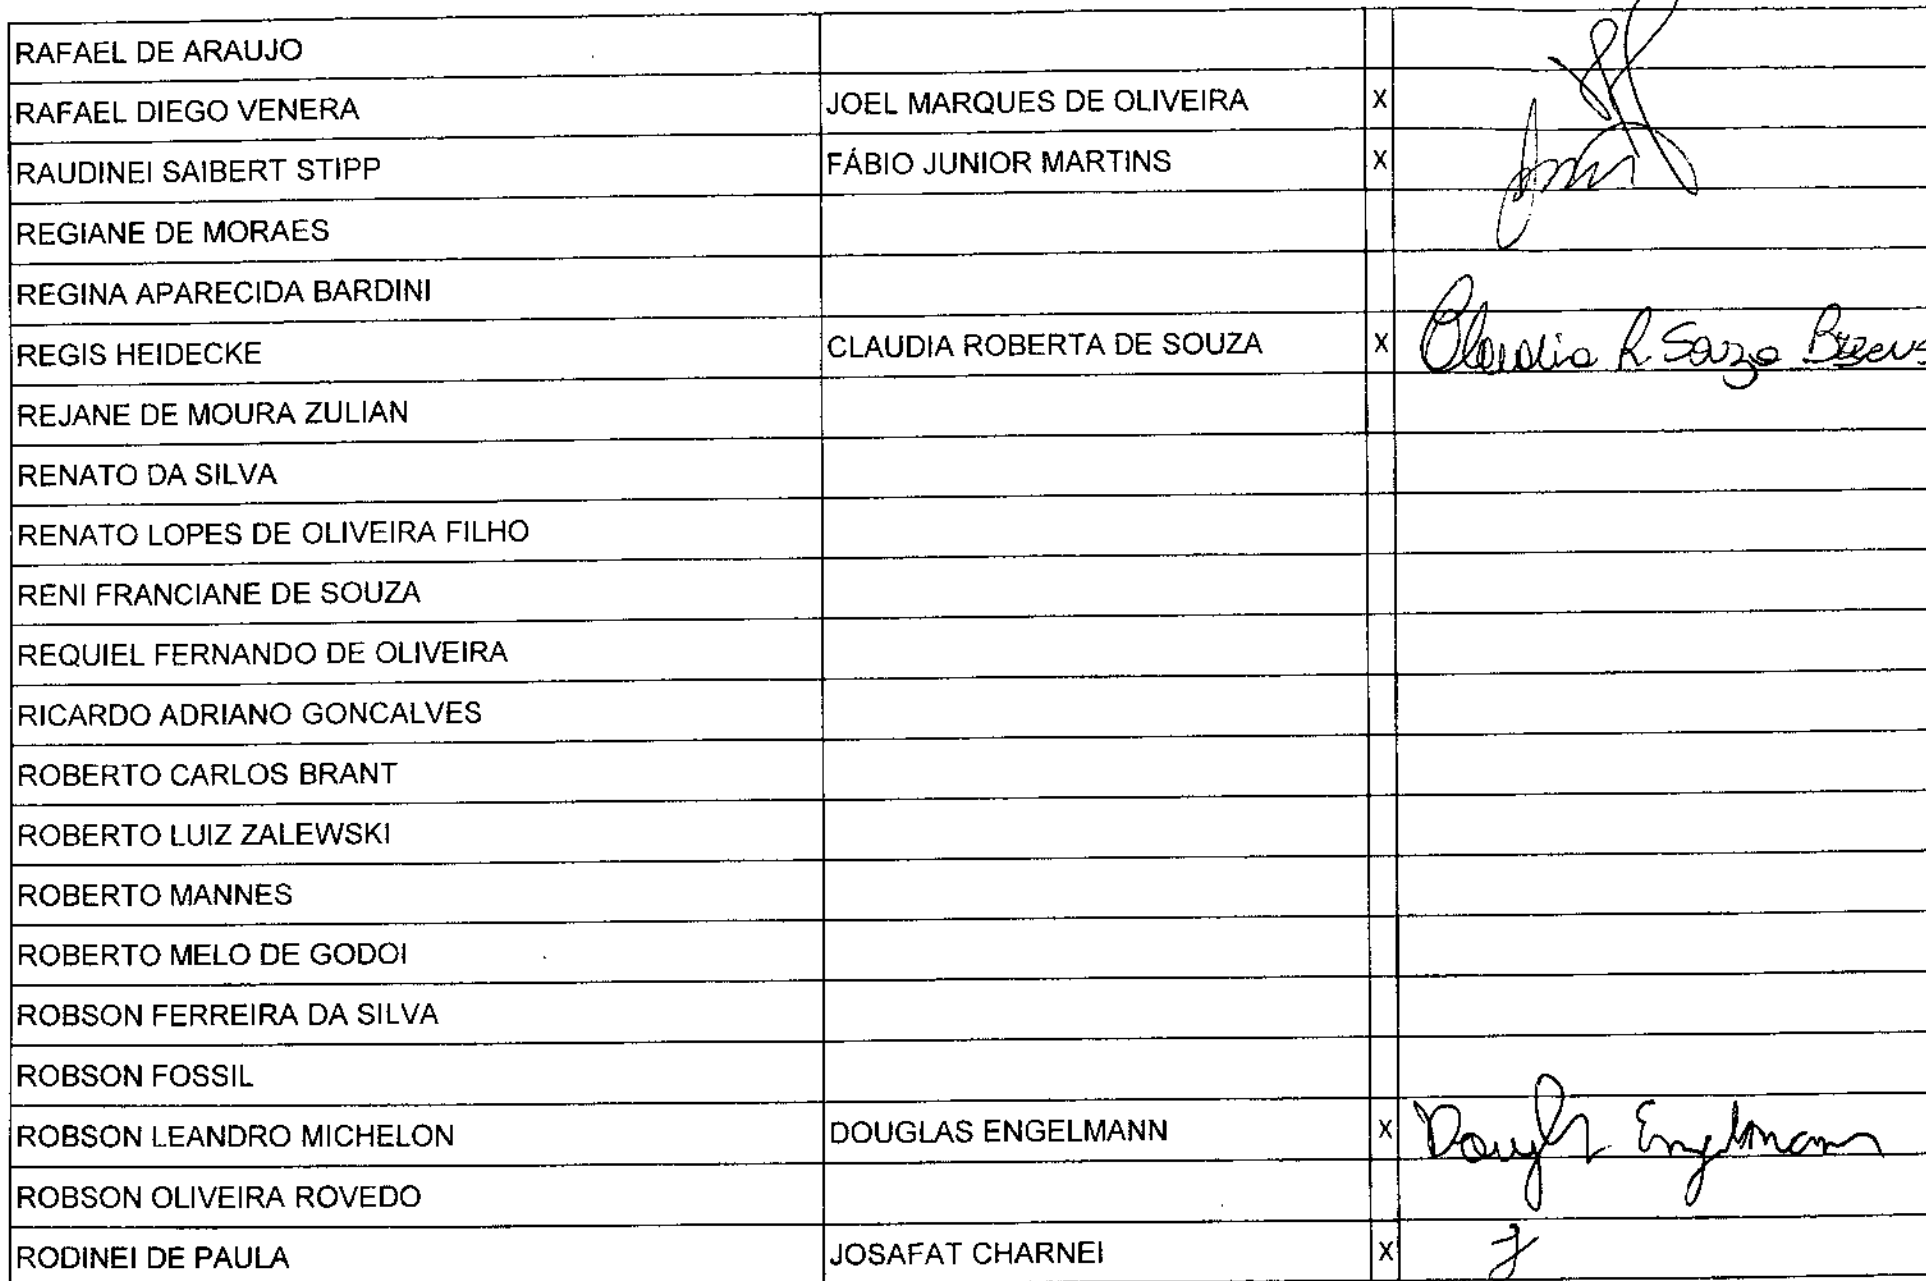 RAFAEL DE ARAUJO
RAFAEL DIEGO VENERA JOEL MARQUES DE OLIVEIRA X
RAUDINEI SAIBERT STIPP FÁBIO JUNIOR MARTINS X
REGIANE DE MORAES
REGINA APARECIDA BARDINI
REGIS HEIDECKE CLAUDIA ROBERTA DE SOUZA X Claudia R Souza
REJANE DE MOURA ZULIAN
RENATO DA SILVA
RENATO LOPES DE OLIVEIRA FILHO
RENI FRANCIANE DE SOUZA
REQUIEL FERNANDO DE OLIVEIRA
RICARDO ADRIANO GONCALVES
ROBERTO CARLOS BRANT
ROBERTO LUIZ ZALEWSKI
ROBERTO MANNES
ROBERTO MELO DE GODOI
ROBSON FERREIRA DA SILVA
ROBSON FOSSIL
ROBSON LEANDRO MICHELON DOUGLAS ENGELMANN X Douglas Engelmann
ROBSON OLIVEIRA ROVEDO
RODINEI DE PAULA JOSAFAT CHARNEI X